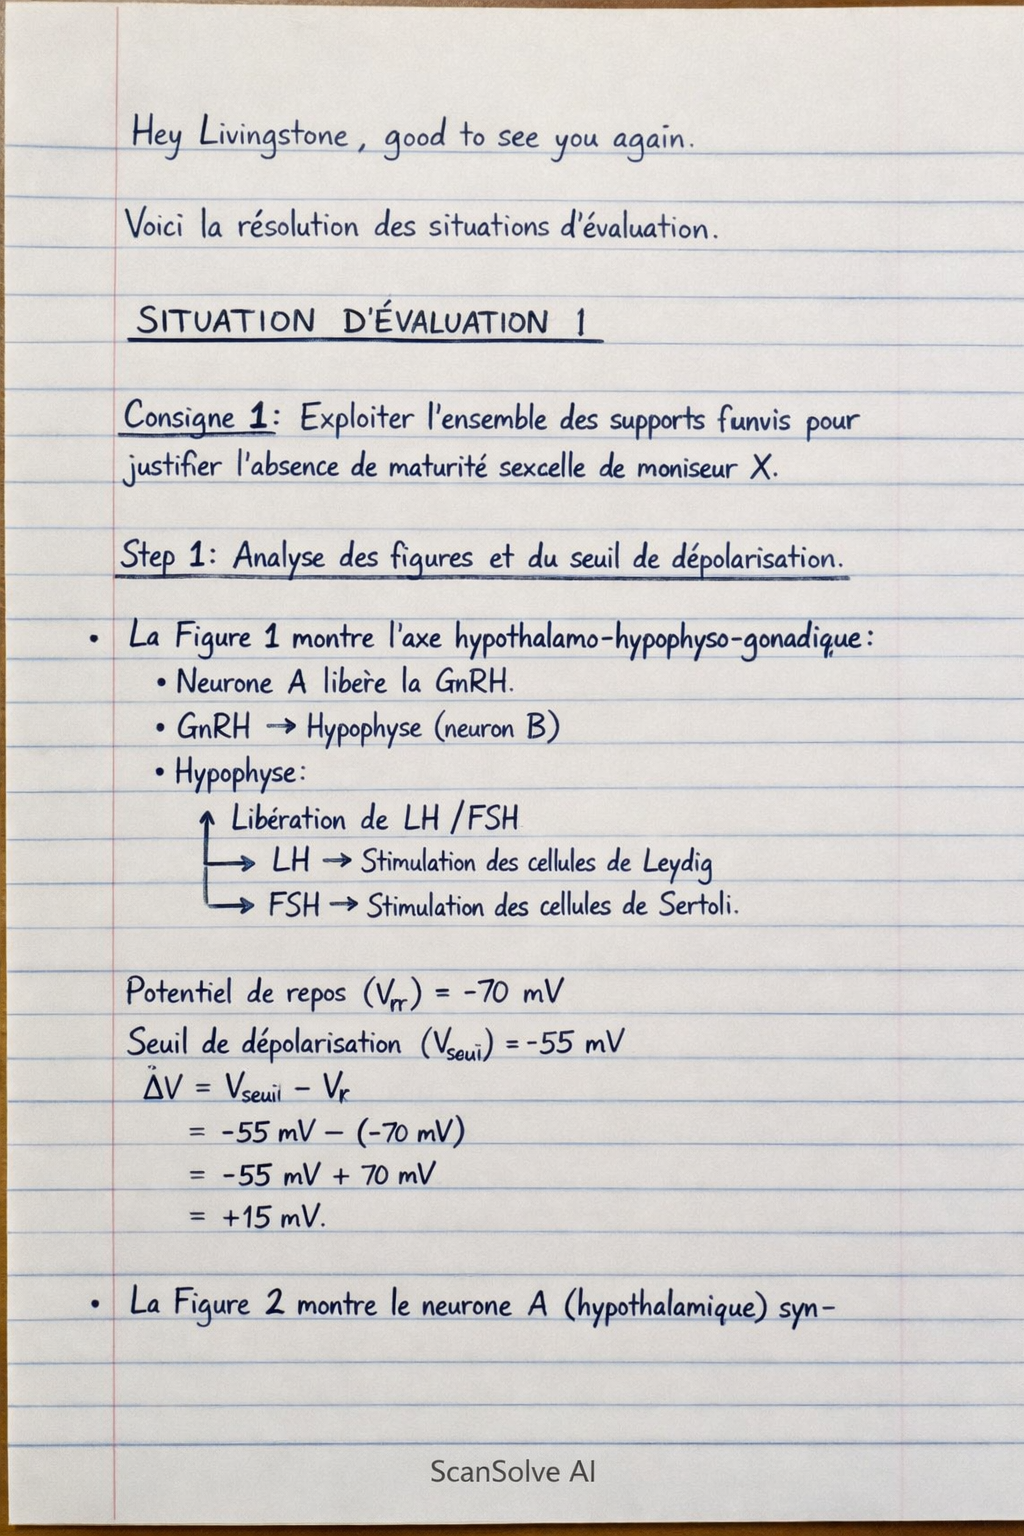 Hey Livingstone, good to see you again.
Voici la résolution des situations d'évaluation.
SITUATION D'ÉVALUATION 1
Consigne 1: Exploiter l'ensemble des supports funvis pour
justifier l'absence de maturité sexcelle de moniseur X.
Step 1: Analyse des figures et du seuil de dépolarisation.
• La Figure 1 montre l'axe hypothalamo-hypophyso-gonadique:
• Neurone A libère la GnRH.
• GnRH → Hypophyse (neuron B)
• Hypophyse:
↑ Libération de LH / FSH
→ LH → Stimulation des cellules de Leydig
→ FSH → Stimulation des cellules de Sertoli.
Potentiel de repos (Vrr) = -70 mV
Seuil de dépolarisation (Vseui) = -55 mV
ΔV = Vseuil - Vr
= -55 mV - (-70 mV)
= -55 mV + 70 mV
= +15 mV.
• La Figure 2 montre le neurone A (hypothalamique) syn-
ScanSolve AI